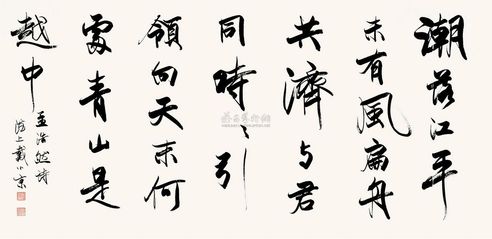 潮落江平
未有風扁舟
共濟与君
同時〻引
領向天末何
處青山是
越中
孟浩然詩
上戴小京